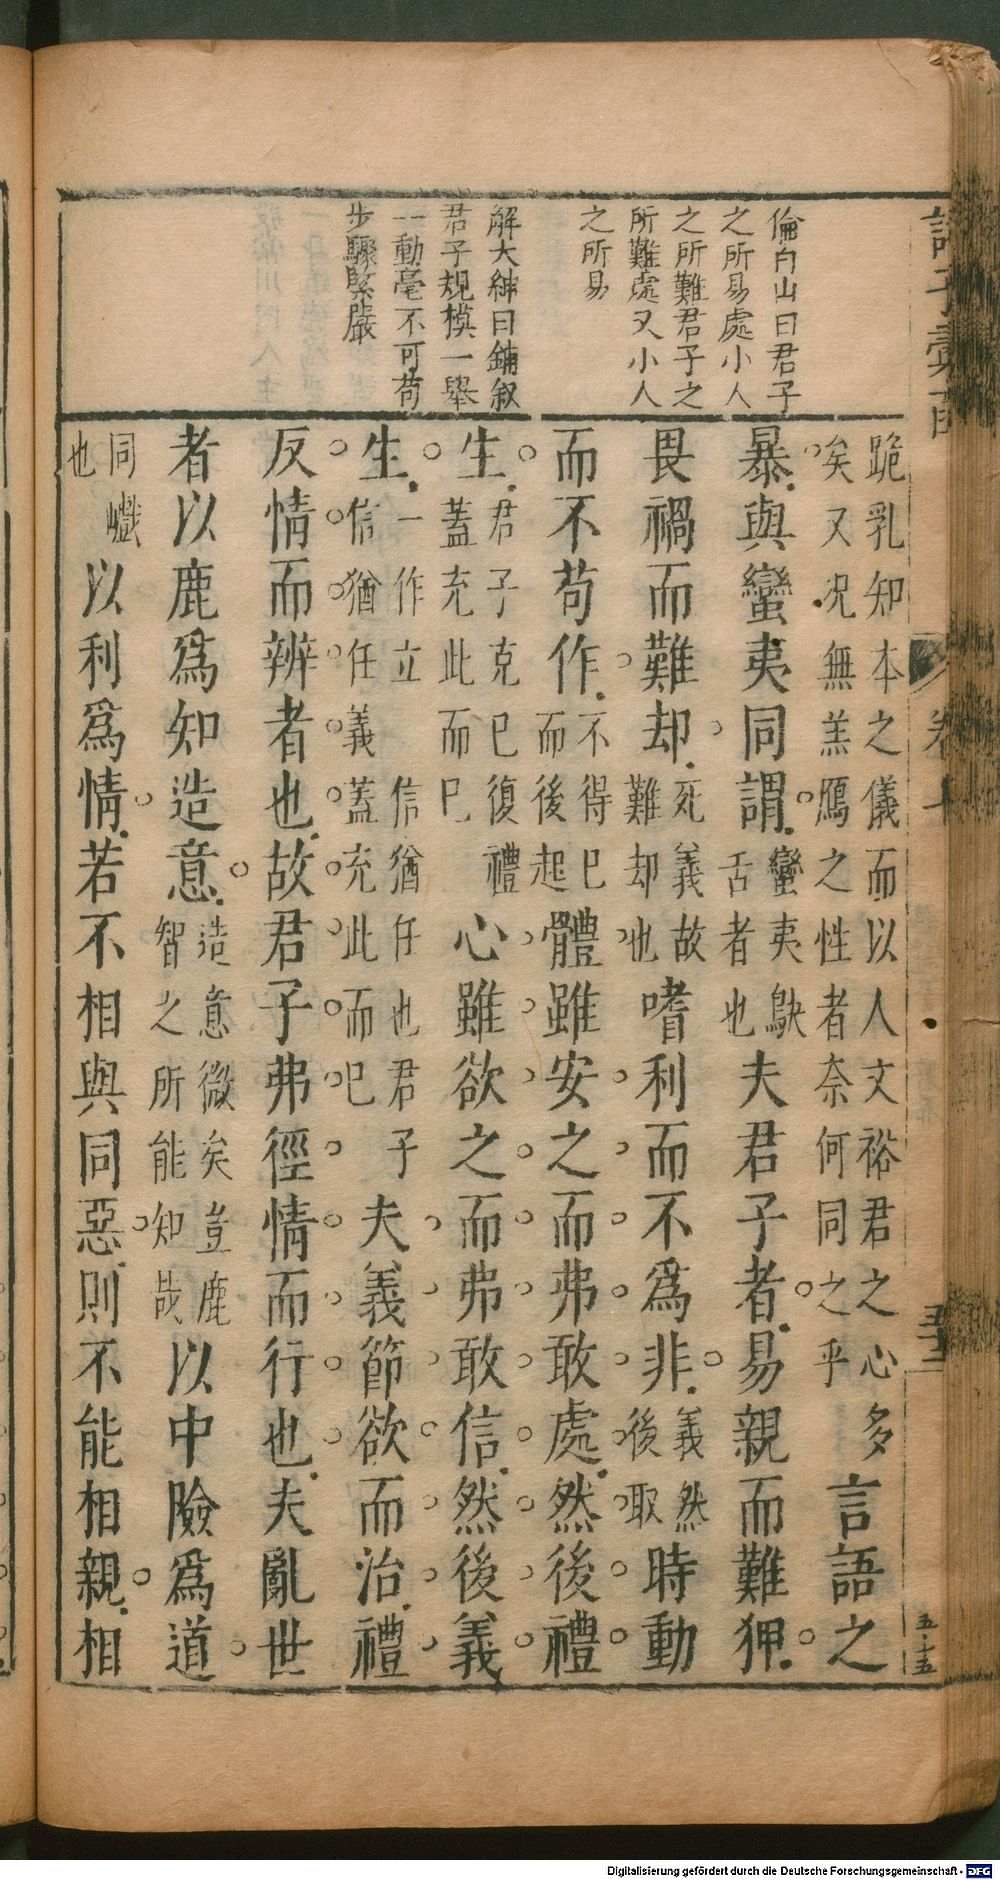 倫白山曰君子
之所易處小人
之所難君子之
所難處又小人
之所易
解大紳曰鋪叙
君子規模一舉
一動毫不可苟
步驟緊嚴
跪乳知本之儀而以人文裕君之心多
矣又况無羔鴈之性者奈何同之乎
言語之
暴與蠻夷同謂
蠻夷鴃
舌者也
夫君子者易親而難狎
畏禍而難却
死義故
難却也
嗜利而不爲非
義然
後取
時動
而不苟作
不得已
而後起
體雖安之而弗敢處然後禮
生
君子克已復禮
蓋充此而已
心雖欲之而弗敢信然後義
生
一作立 信猶任也君子
信猶任義 蓋充此而已
夫義節欲而治禮
反情而辨者也故君子弗徑情而行也夫亂世
者以鹿爲知造意
造意微矣豈鹿
智之所能知哉
以中險爲道
同巇
也
以利爲情若不相與同惡則不能相親相
卷十
五十五
Digitalisierung gefördert durch die Deutsche Forschungsgemeinschaft - DFG